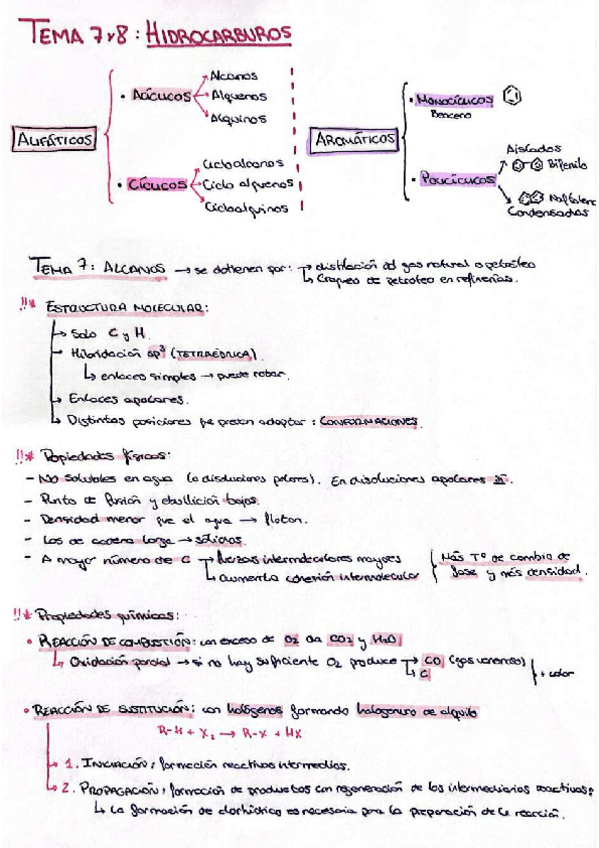 TEMA 7 y 8: HIDROCARBUROS
ALIFÁTICOS
• ACÍCLICOS
Alcanos
Alquenos
Alquinos
• CÍCLICOS
Cicloalcanos
Ciclo alquenos
Cicloalquinos
AROMÁTICOS
• MONOCÍCLICOS
Benceno
• POLICÍCLICOS
Aislados
Bifenilo
Naftaleno
Condensados
TEMA 7: ALCANOS → se obtienen por: → destilación del gas natural o petróleo
↳ Craqueo de petróleo en refinerías.
!!* ESTRUCTURA MOLECULAR:
→ Solo C y H.
→ Hibridación sp³ (TETRAÉDRICA).
↳ enlaces simples → puede rotar.
→ Enlaces apolares.
→ Distintas posiciones que pueden adoptar: CONFORMACIONES.
!!* Propiedades físicas:
- No solubles en agua (o disoluciones polares). En disoluciones apolares sí.
- Punto de fusión y ebullición bajos.
- Densidad menor que el agua → flotan.
- Los de cadena larga → sólidos.
- A mayor número de C → fuerzas intermoleculares mayores
↳ aumenta cohesión intermolecular
Más Tº de cambio de
fase y más densidad.
!!* Propiedades químicas:
• REACCIÓN DE COMBUSTIÓN: con exceso de O2 da CO2 y H2O
↳ Oxidación parcial → si no hay suficiente O2 produce → CO (gas venenoso)
↳ C
+ calor
• REACCIÓN DE SUSTITUCIÓN: con halógenos formando halogenuro de alquilo
R-H + X2 → R-X + HX
→ 1. INICIACIÓN: formación reactivos intermedios.
→ 2. PROPAGACIÓN: formación de productos con regeneración de los intermediarios reactivos:
↳ La formación de clorhídrico es necesaria para la preparación de la reacción.